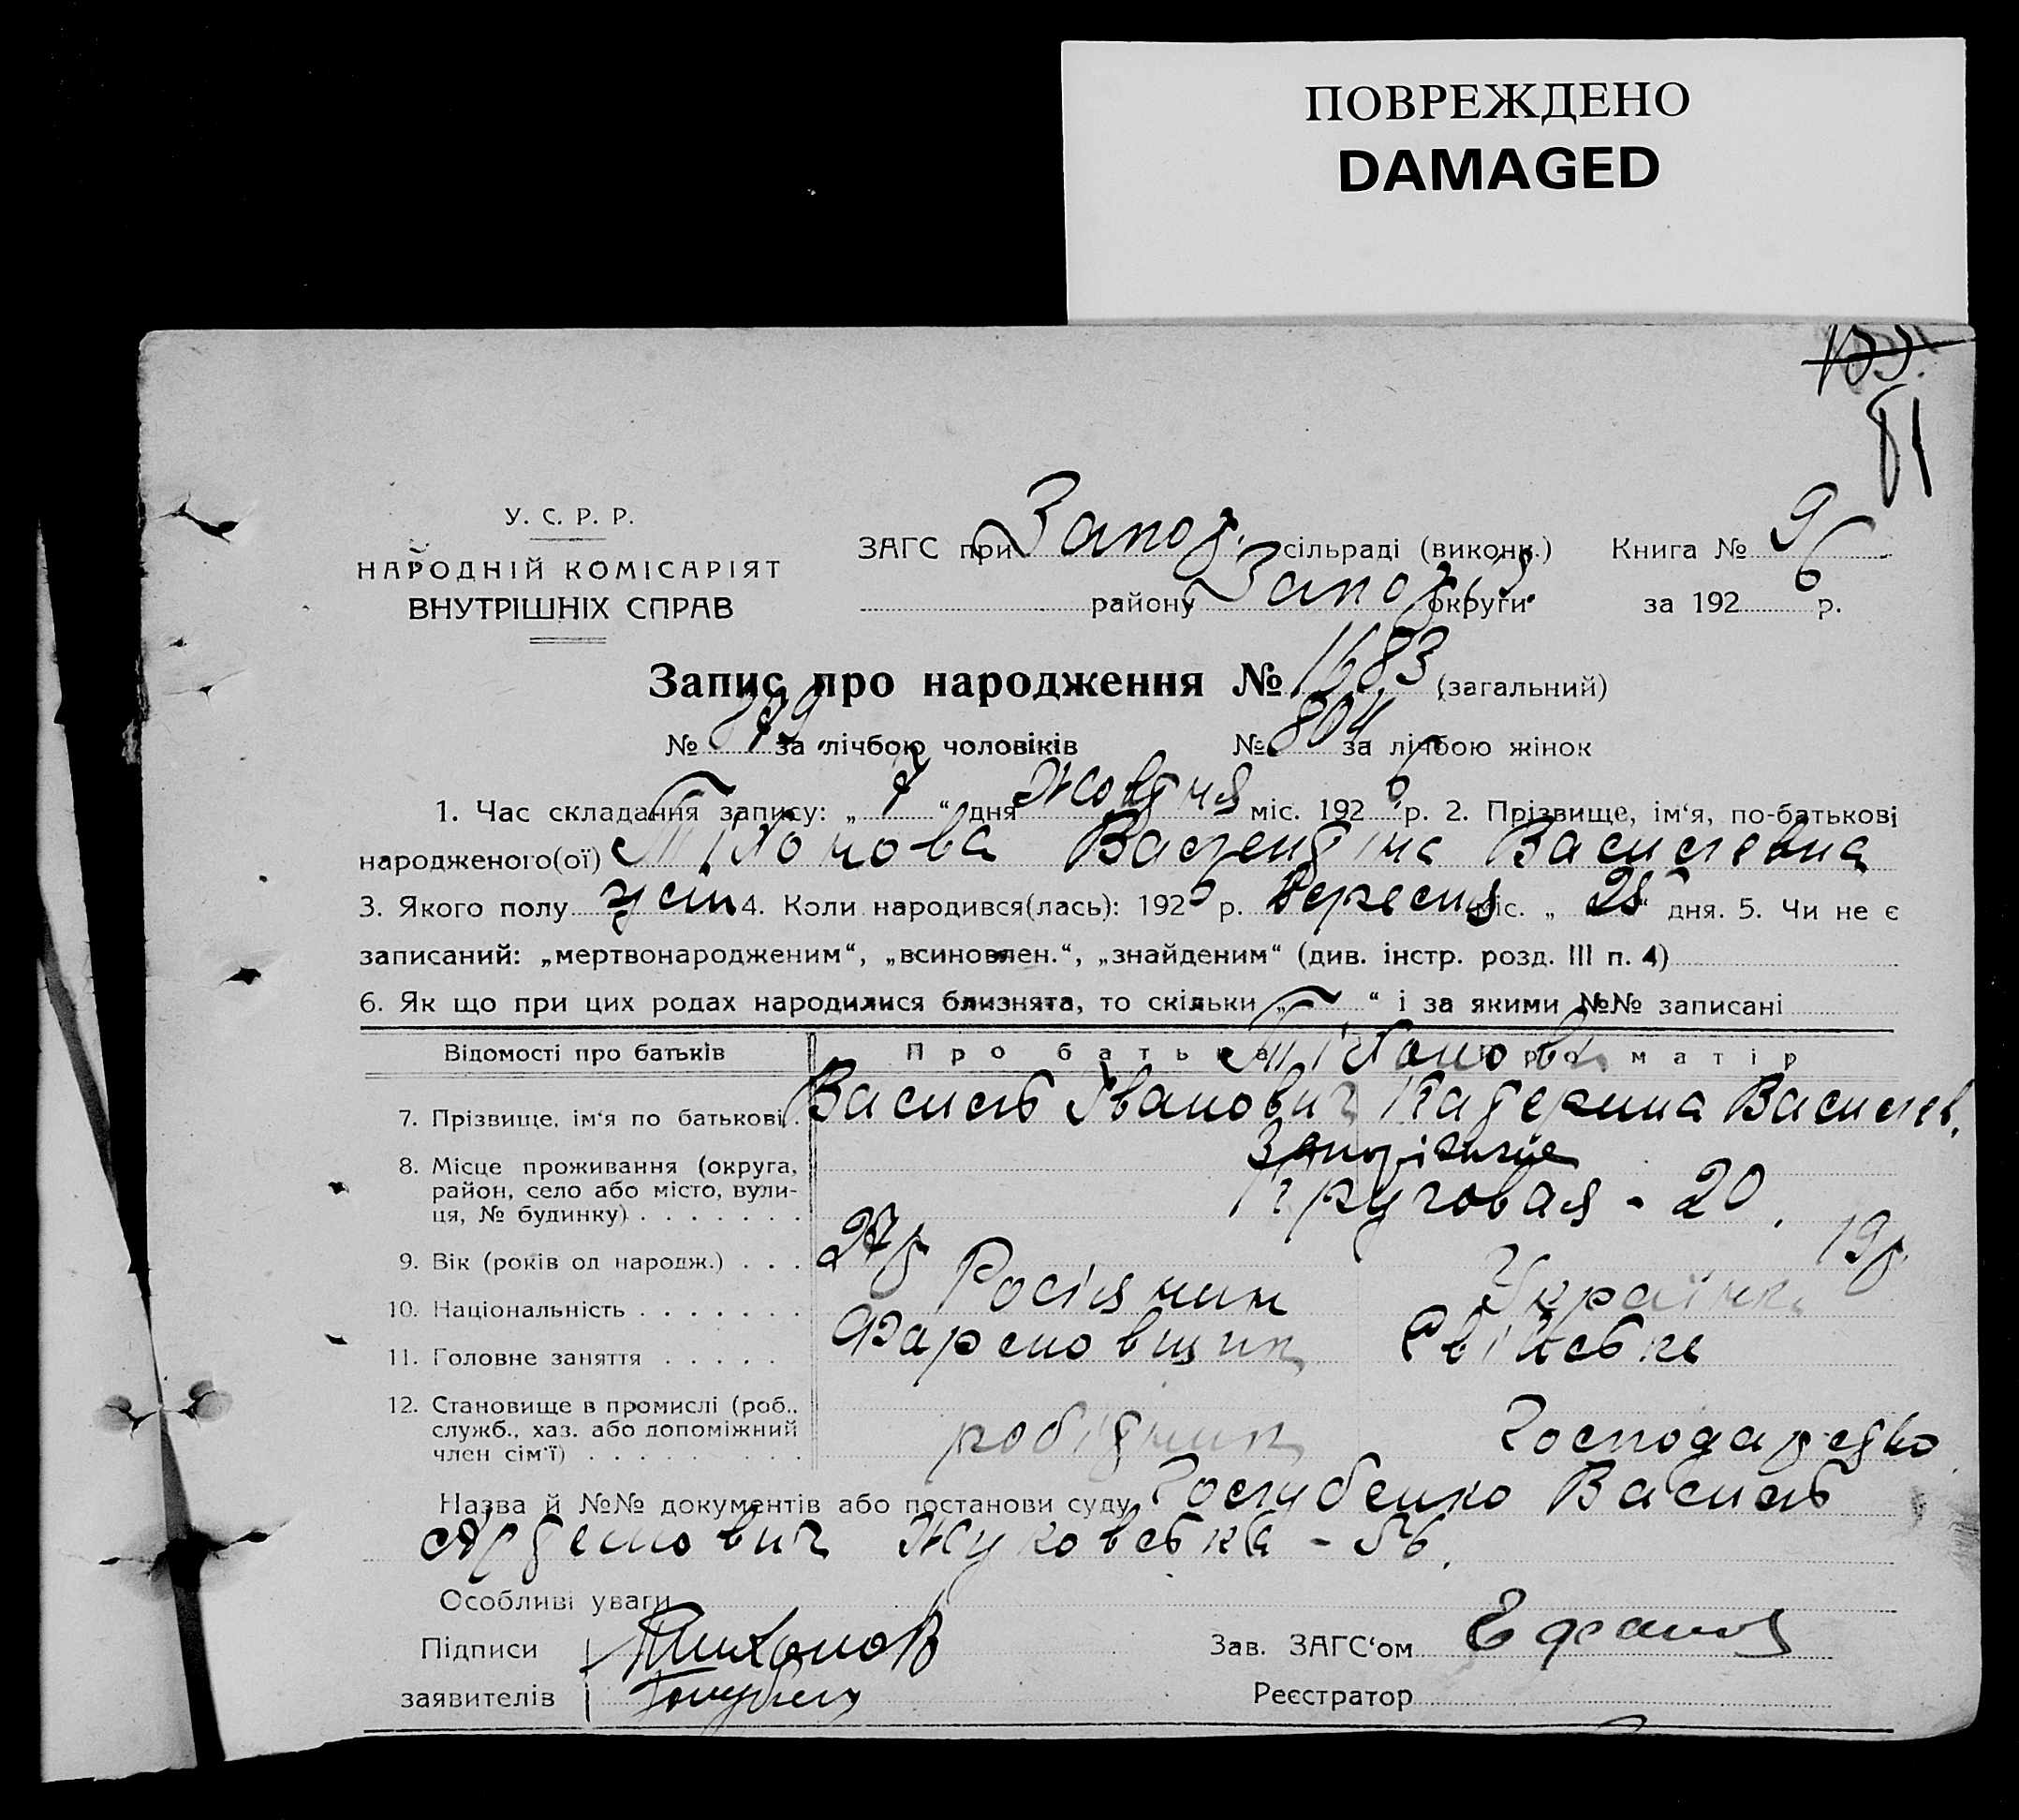 ПОВРЕЖДЕНО
DAMAGED
81
У. С. Р. Р.
НАРОДНІЙ КОМІСАРІЯТ
ВНУТРІШНІХ СПРАВ
ЗАГС при Запор. сільраді (викон.) Книга № 9
району Запоріз. округи за 1926 р.
Запис про народження № 1683 (загальний)
№ 879 за лічбою чоловіків № 804 за лічбою жінок
1. Час складання запису: „ 7 “ дня Жовтня міс. 1926 р. 2. Прізвище, ім‘я, по-батькові
народженого(ої) Тіхонова Валентіна Васильевна
3. Якого полу жін 4. Коли народився(лась): 1926 р. Вересня міс. „ 28 “ дня. 5. Чи не є
записаний: „мертвонародженим“, „всиновлен.“, „знайденим“ (див. інстр. розд. III п. 4)
6. Як що при цих родах народилися близнята, то скільки „ “ і за якими №№ записані
Відомості про батьків Про батька Про матір
Тіхонови
7. Прізвище, ім‘я по батькові. Василь Іванович Катерина Василев.
8. Місце проживання (округа, Запоріжжe
район, село або місто, вули- Круговая - 20.
ця, № будинку)
9. Вік (років од народж.) . . . 27р 19р.
10. Національність Росіянин Українка
11. Головне заняття Фармовщик Свійське
12. Становище в промислі (роб.,
служб., хаз. або допоміжний робітник Господарство
член сім‘ї)
Назва й №№ документів або постанови суду Голубенко Василь
Артемович Жуковська - 56.
Особливі уваги
Підписи Тихонов Зав. ЗАГС‘ом
заявителів Реєстратор